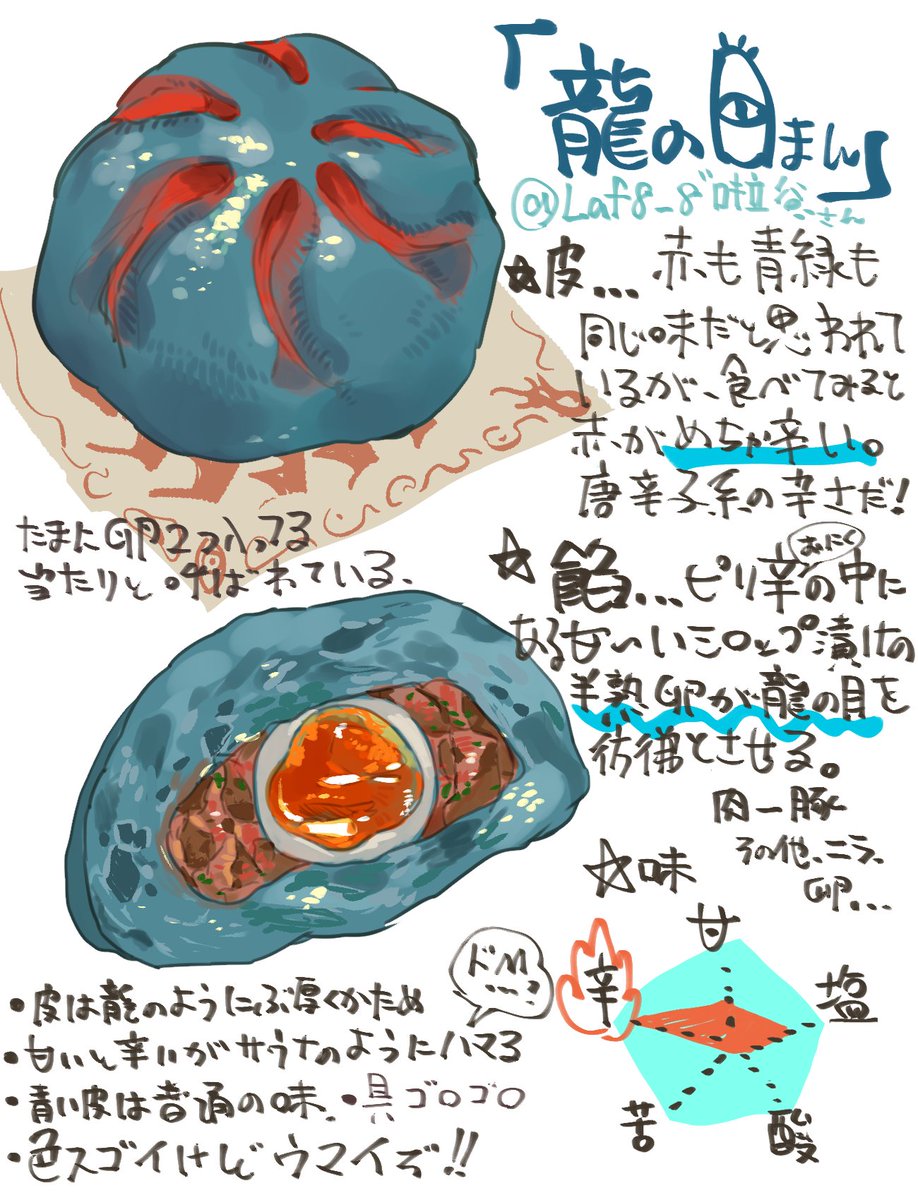 「龍の目まん」
@Laf8_8" 啦谷さん
☆皮... 赤も青緑も
同じ味だと思われて
いるが、食べてみると
赤がめちゃ辛い。
唐辛子系の辛さだ!
たまに卵2つ入ってる
当たりと呼ばれている、
☆餡...ピリ辛おにくの中に
ある甘〜いシロップ漬けの
半熟卵が龍の目を
彷彿とさせる。
肉ー豚
その他、ニラ、
卵...
☆味
甘
辛
塩
苦
酸
ドM…?
・皮は龍のようにぶ厚くかため
・甘いと辛いがサウナのようにハマる
・青い皮は普通の味、・具ゴロゴロ
・色スゴイけどウマイぞ!!